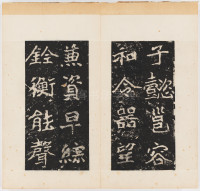 子懿邕容
和令器望
兼資早綜
銓衡能聲